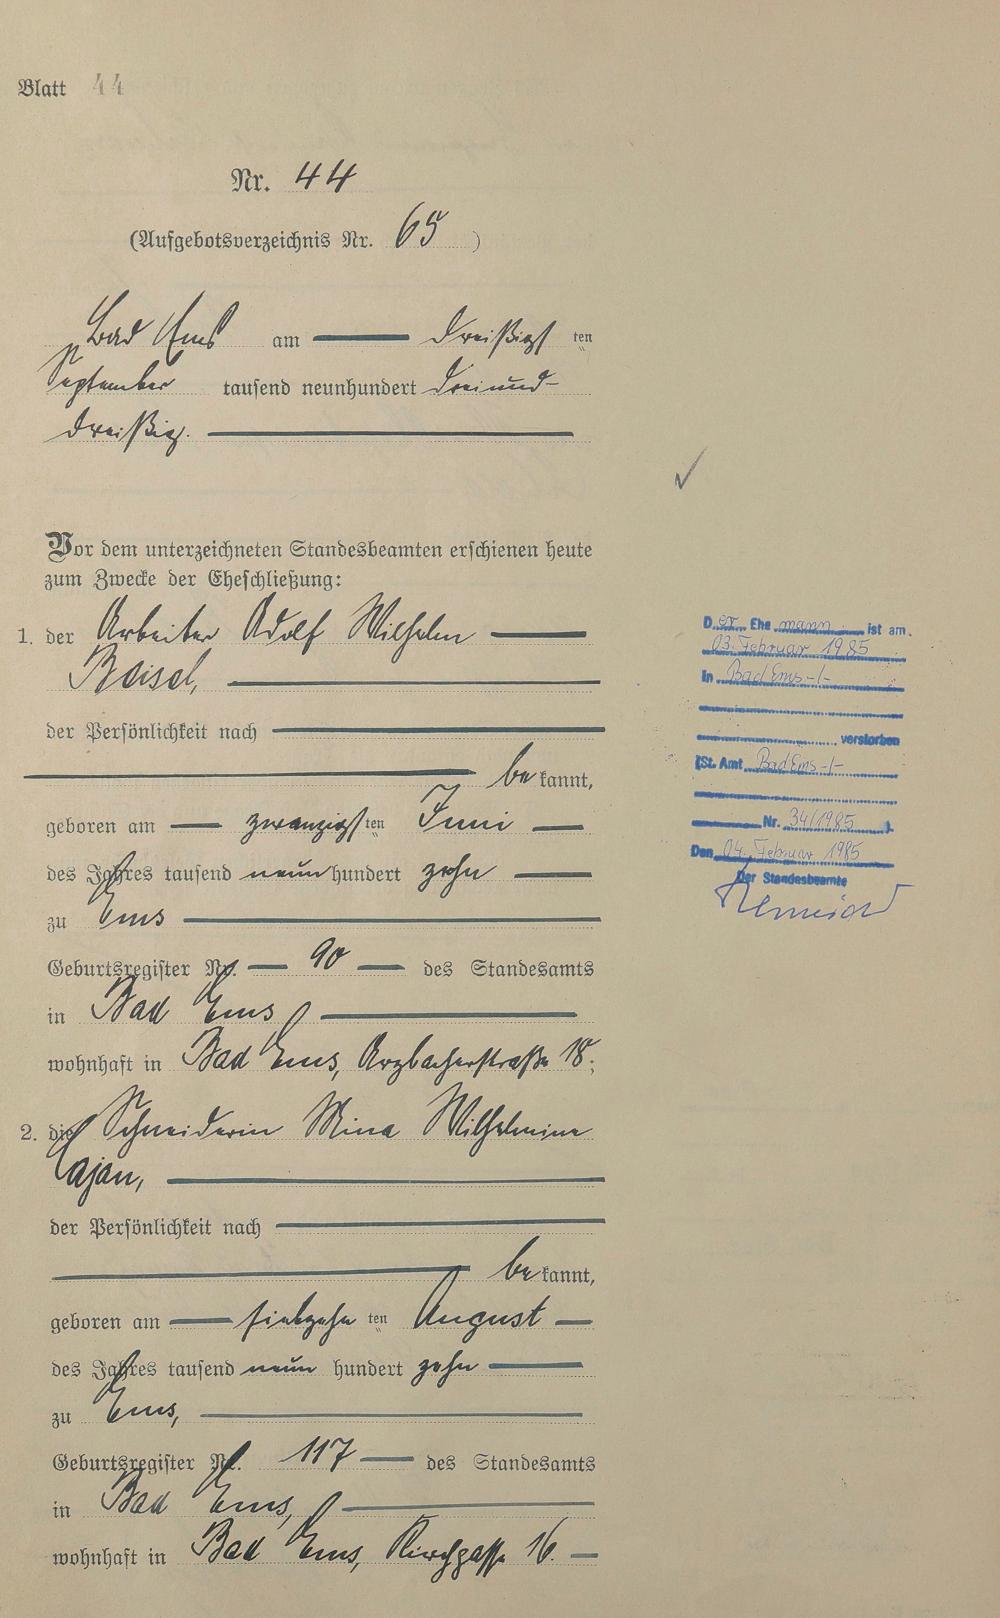 Blatt 44
Nr. 44
(Aufgebotsverzeichnis Nr. 65)
Bad Ems am dreißigsten
September tausend neunhundert dreiund-
dreißig.
Vor dem unterzeichneten Standesbeamten erschienen heute
zum Zwecke der Eheschließung:
1. der Arbeiter Adolf Wilhelm
Beisel,
der Persönlichkeit nach
bekannt,
geboren am zwanzigsten Juni
des Jahres tausend neunhundert zehn
zu Ems
Geburtsregister Nr. 90 des Standesamts
in Bad Ems
wohnhaft in Bad Ems, Arzbacherstraße 18;
2. die Schneiderin Mina Wilhelmine
Cajan,
der Persönlichkeit nach
bekannt,
geboren am siebzehnten August
des Jahres tausend neunhundert zehn
zu Ems,
Geburtsregister Nr. 117 des Standesamts
in Bad Ems,
wohnhaft in Bad Ems, Kirchgasse 16.
Der Ehemann ist am
03. Februar 1985
in Bad Ems -/-
verstorben
(St. Amt Bad Ems -/-
Nr. 34/1985 ).
Den 04. Februar 1985
Der Standesbeamte